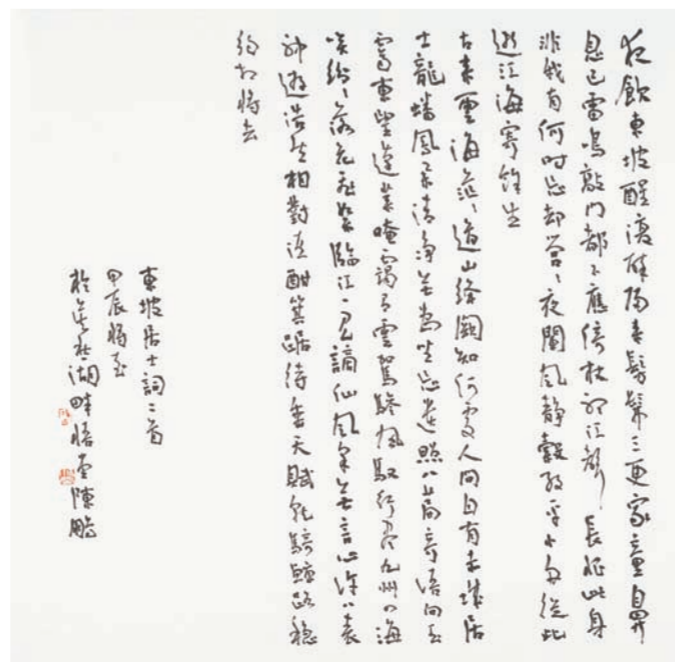 夜飲東坡醒復醉歸來髣髴三更家童鼻
息已雷鳴敲門都不應倚杖聽江聲 長恨此身
非我有何時忘却營〻夜闌風靜縠紋平小舟從此
逝江海寄餘生
古來雲海茫〻道山絳闕知何處人間自有赤城居
士龍蟠鳳舉清淨無為坐忘遺照八篇奇語向玉
霄東望蓬萊晻靄有雲駕驂風馭行盡九州四海
笑紛〻落花飛絮臨江一見謫仙風采無言心許八表
神遊浩然相對酒酣箕踞待垂天賦就騎鯨路穩
約相將去
東坡居士詞二首
甲辰
於莫愁湖畔悟堂陳鵬